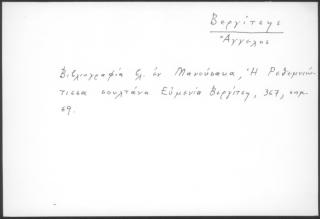 Βεργίτσης
Ἄγγελος
Βιβλιογραφία βλ. ἐν Μανούσακα, Ἡ Ρεθεμνιώ-
τισσα σουλτάνα Εὐμενία Βεργίτση, 367, σημ.
69.